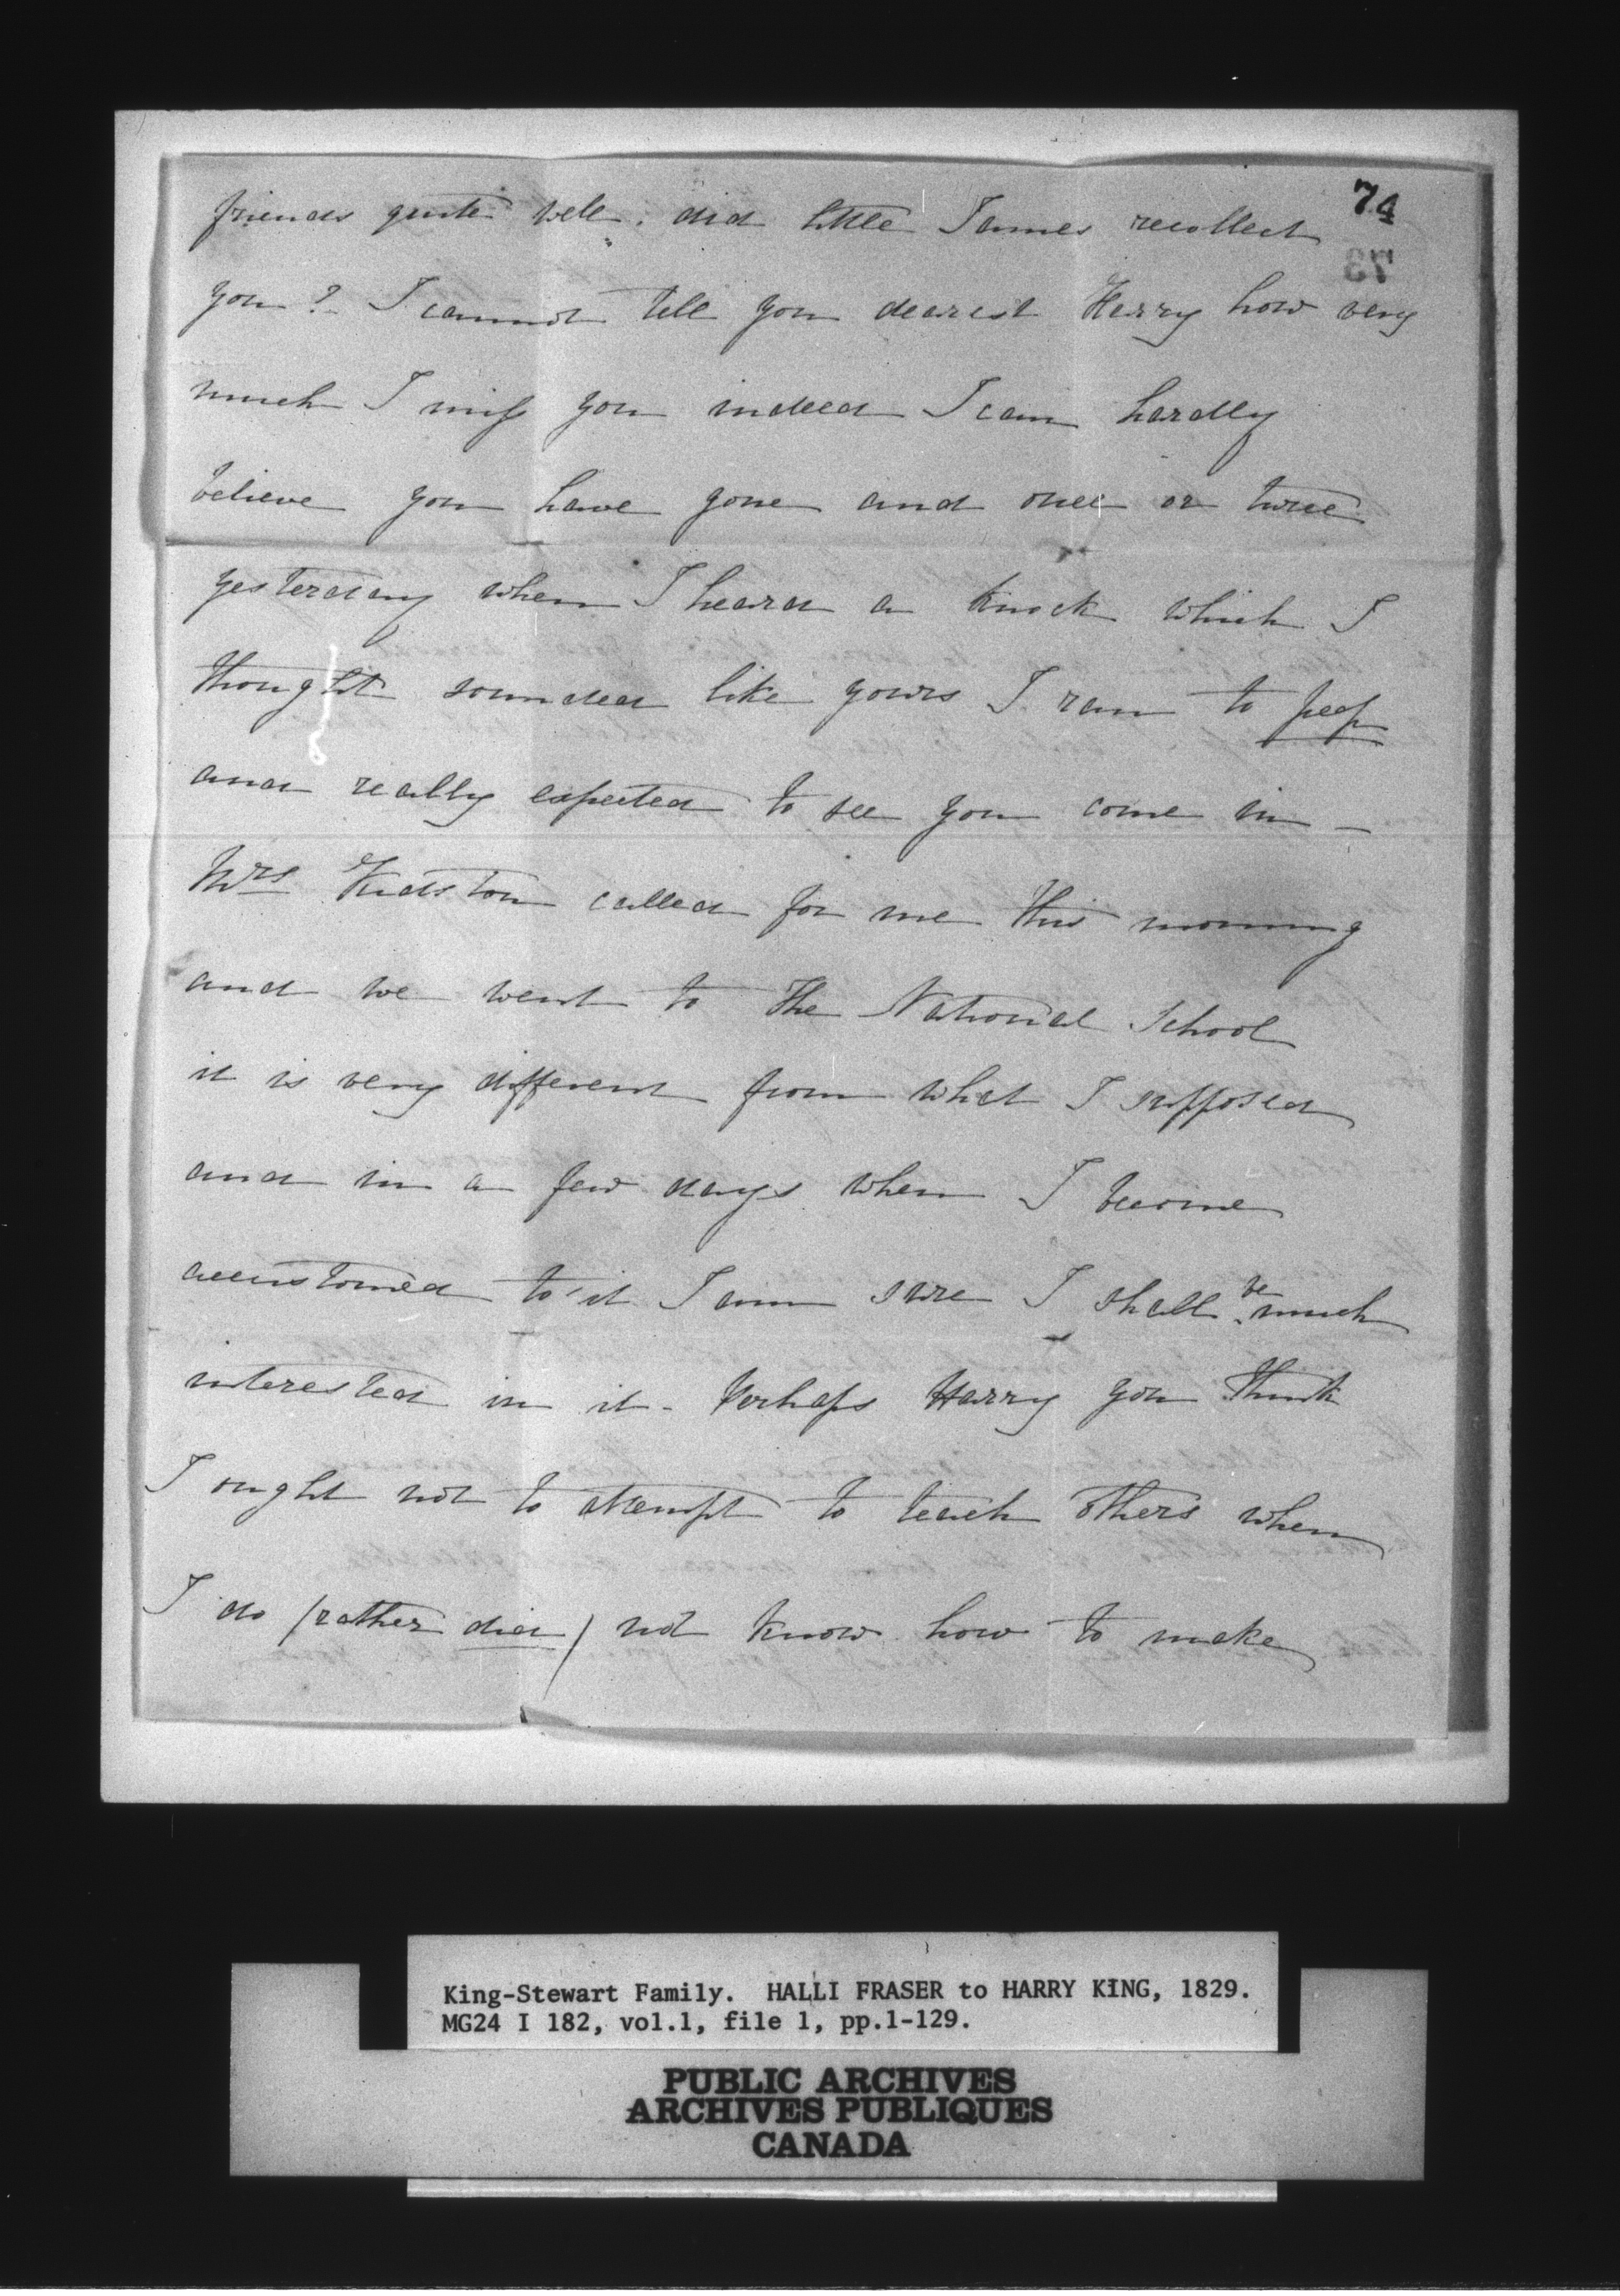 74
friends quite well. did little James recollect
you? I cannot tell you dearest Harry how very
much I miss you indeed I can hardly
believe you have gone and once or twice
yesterday when I heard a knock which I
thought sounded like yours I ran to peep
and really expected to see you come in —
Mrs Kidston called for me this morning
and we went to the National School
it is very different from what I supposed
and in a few days when I become
accustomed to it I am sure I shall be much
interested in it - Perhaps Harry you think
I ought not to attempt to teach others when
I do (rather did) not know how to make
King-Stewart Family. HALLI FRASER to HARRY KING, 1829.
MG24 I 182, vol.1, file 1, pp.1-129.
PUBLIC ARCHIVES
ARCHIVES PUBLIQUES
CANADA